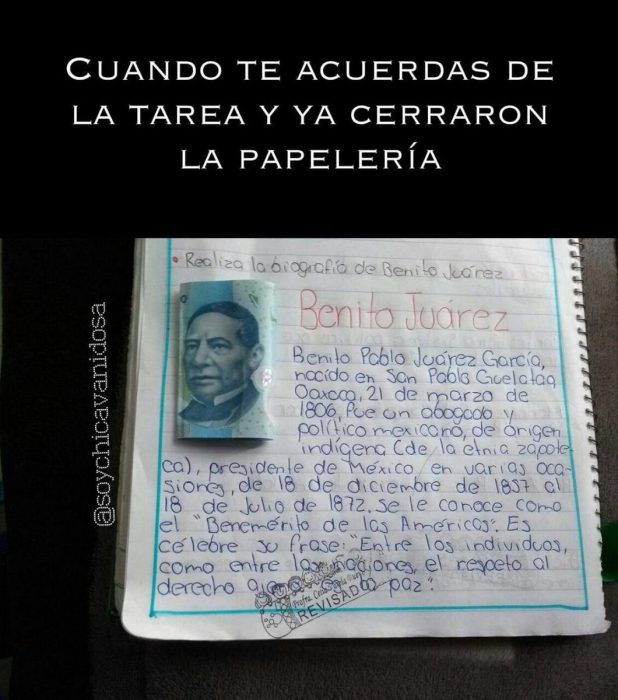 CUANDO TE ACUERDAS DE
LA TAREA Y YA CERRARON
LA PAPELERÍA
@soychicavanidosa
• Realiza la biografía de Benito Juárez
Benito Juárez
Benito Pablo Juárez García,
nacido en San Pablo Guelatao,
Oaxaca, 21 de marzo de
1806, fue un abogado y
político mexicano, de origen
indígena (de la etnia zapote-
ca), presidente de México en varias oca-
siones, de 18 de diciembre de 1857 al
18 de Julio de 1872. Se le conoce como
el "Benemérito de las Américas". Es
célebre su frase: "Entre los individuos,
como entre las naciones, el respeto al
derecho ajeno es la paz".
Profra.
REVISADO